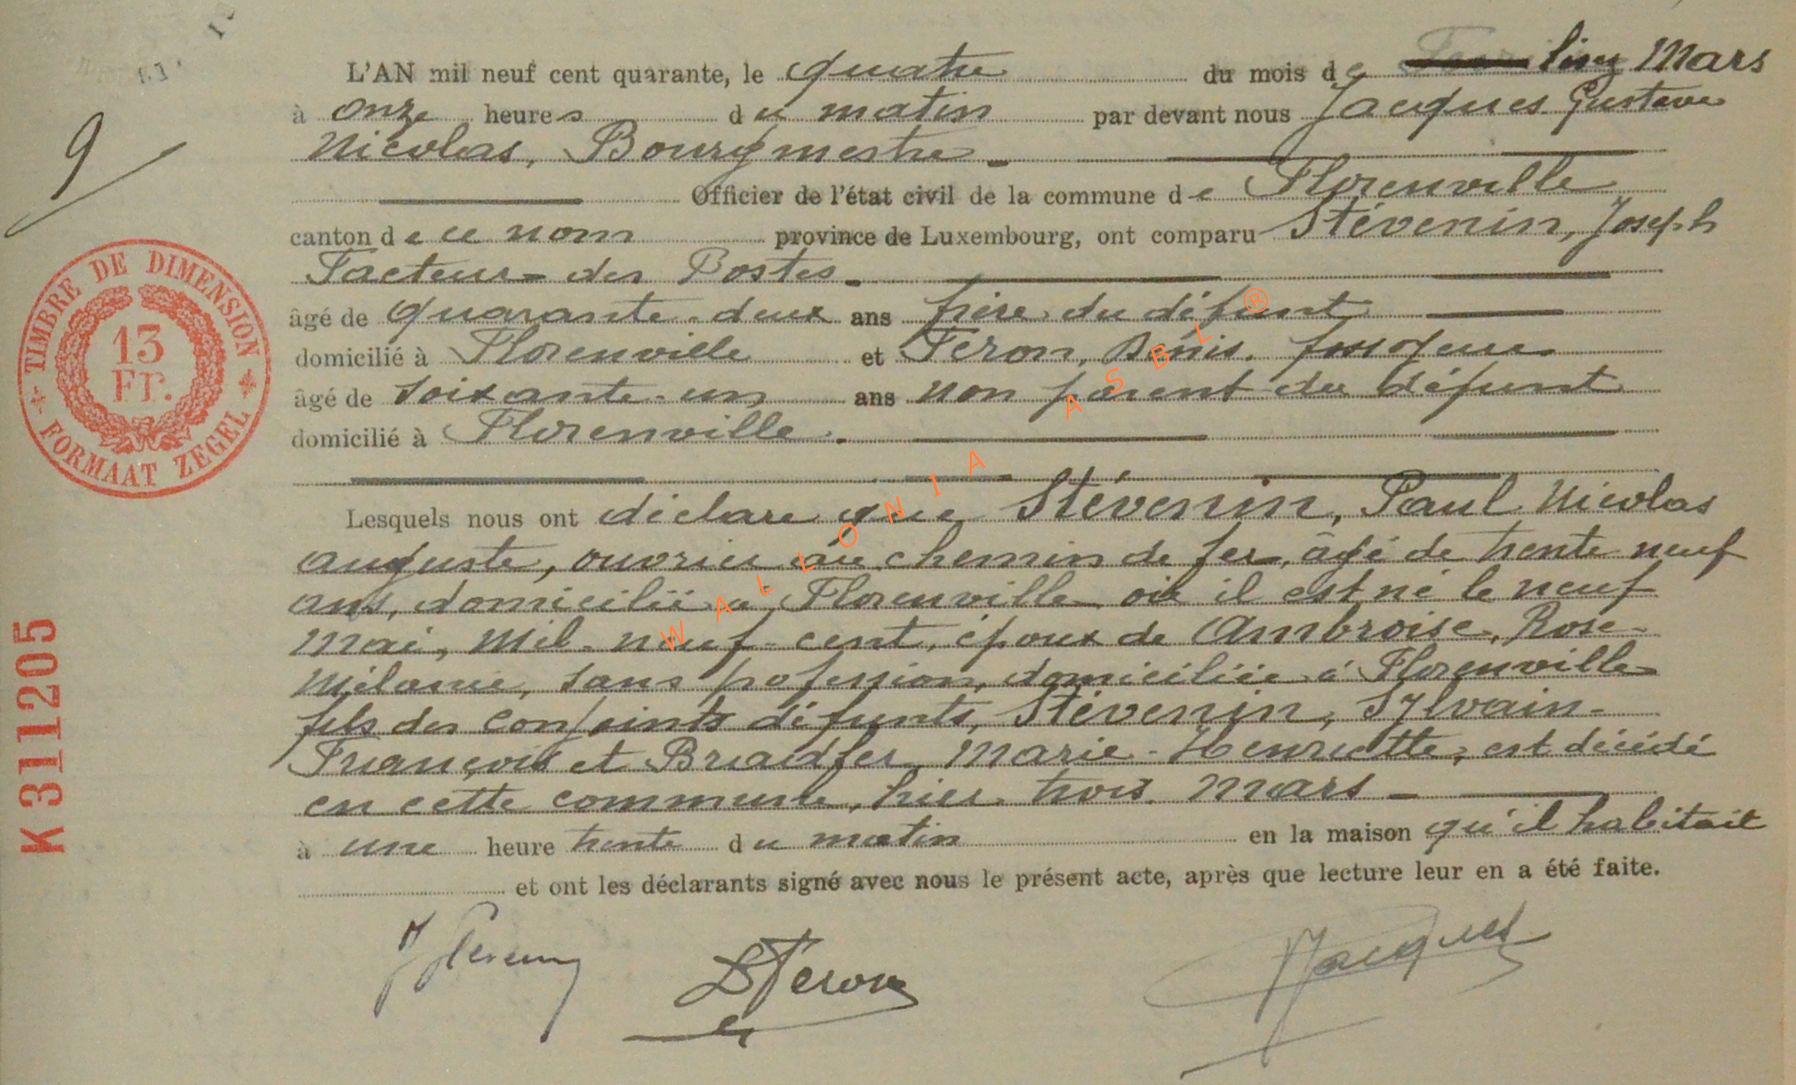 L'AN mil neuf cent quarante, le quatre du mois de Mars
à onze heures du matin par devant nous Jacques Gustave
Nicolas, Bourgmestre
Officier de l'état civil de la commune de Florenville
canton de ce nom province de Luxembourg, ont comparu Stévenin, Joseph
Facteur des Postes
âgé de quarante-deux ans frère du défunt
domicilié à Florenville et Féron, Denis, fossoyeur
âgé de soixante-un ans non parent du défunt
domicilié à Florenville.
Lesquels nous ont déclaré que Stévenin, Paul Nicolas
Auguste, ouvrier au chemin de fer, âgé de trente neuf
ans, domicilié à Florenville où il est né le neuf
mai, mil-neuf-cent, époux de Ambroise, Rose-
Mélanie, sans profession, domiciliée à Florenville
fils des conjoints défunts, Stévenin, Sylvain-
François et Bradfer, Marie-Henriette, est décédé
en cette commune, hier trois Mars
à une heure trente du matin en la maison qu'il habitait
et ont les déclarants signé avec nous le présent acte, après que lecture leur en a été faite.
D Feron
Jacques
9
TIMBRE DE DIMENSION
13
Fr.
FORMAAT ZEGEL
K 311205
WALLONIA ASBL ®